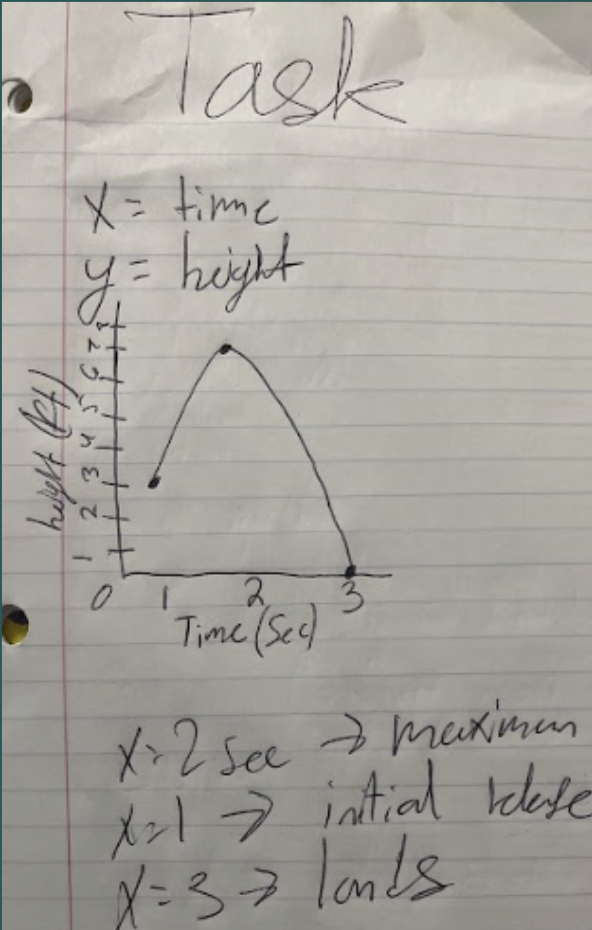 Task
x = time
y = height
height (ft)
7
6
5
4
3
2
1
0 1 2 3
Time (Sec)
x=2 sec → maximum
x=1 → initial
x=3 → lands